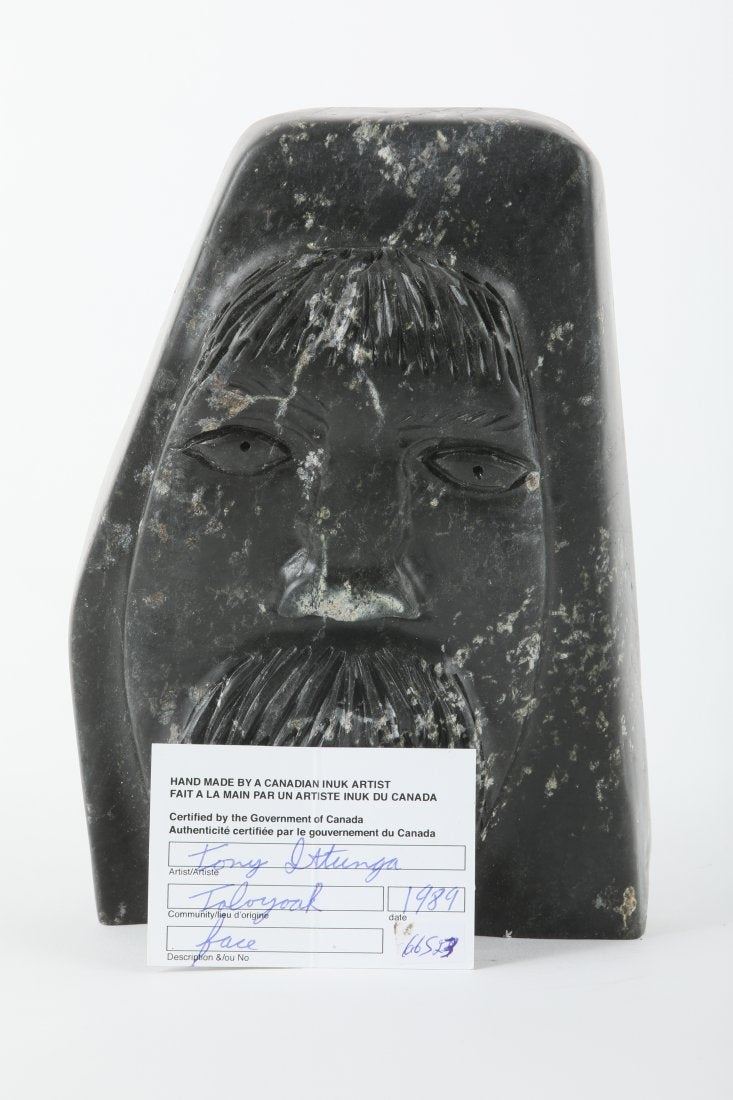 HAND MADE BY A CANADIAN INUK ARTIST
FAIT A LA MAIN PAR UN ARTISTE INUK DU CANADA
Certified by the Government of Canada
Authenticité certifiée par le gouvernement du Canada
Tony Ittunga
Artist/Artiste
Taloyoak 1989
Community/lieu d'origine date
face 66523
Description &/ou No